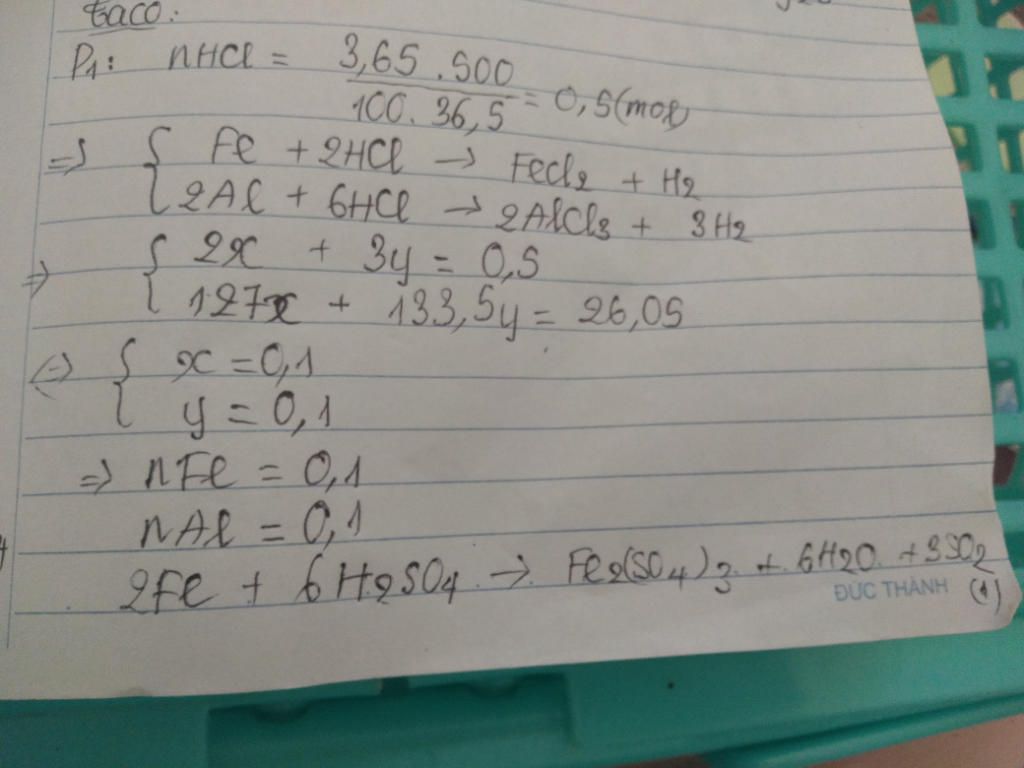 taco:
P1: nHCl = 3,65 . 500 / 100 . 36,5 = 0,5(mol)
=> { Fe + 2HCl -> FeCl2 + H2
2Al + 6HCl -> 2AlCl3 + 3H2
=> { 2x + 3y = 0,5
127x + 133,5y = 26,05
<=> { x = 0,1
y = 0,1
=> nFe = 0,1
nAl = 0,1
2Fe + 6H2SO4 -> Fe2(SO4)3 + 6H2O + 3SO2
ĐỨC THÀNH (1)